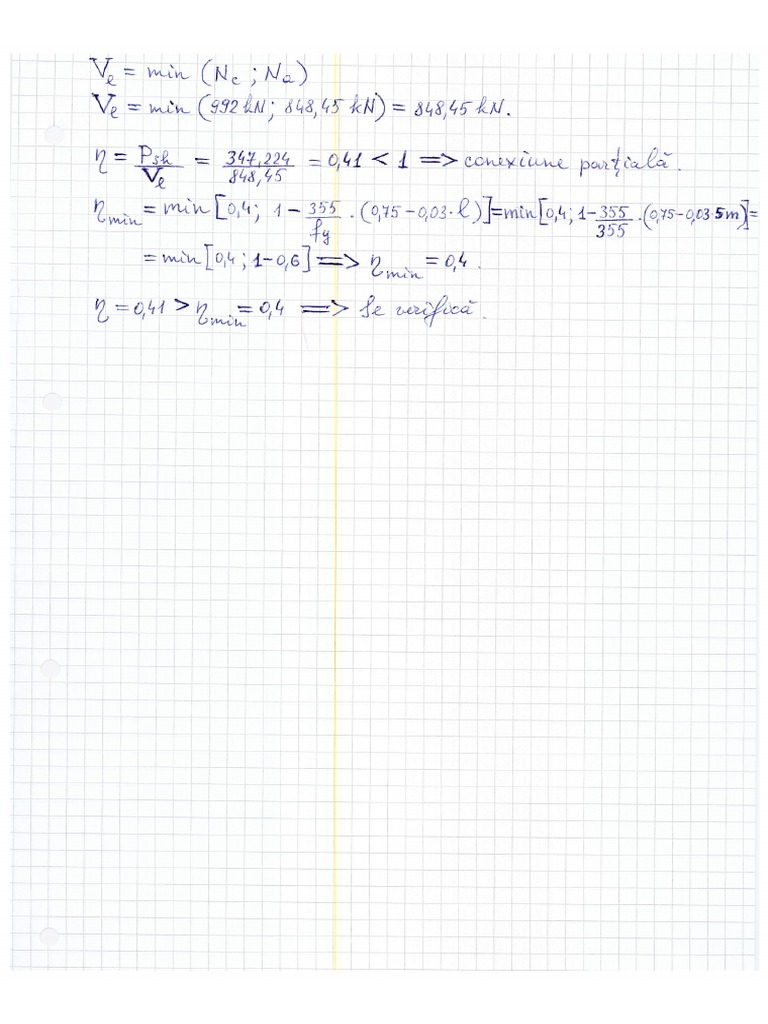 Vℓ = min (Nc ; Na)
Vℓ = min (992 kN; 848,45 kN) = 848,45 kN.
η = Psh/Vℓ = 347,224/848,45 = 0,41 < 1 => conexiune parțială.
ηmin = min [0,4; 1 - 355/fy · (0,75 - 0,03 · ℓ)] = min [0,4; 1 - 355/355 · (0,75 - 0,03 · 5m)] =
= min [0,4; 1 - 0,6] => ηmin = 0,4.
η = 0,41 > ηmin = 0,4 => Se verifică.